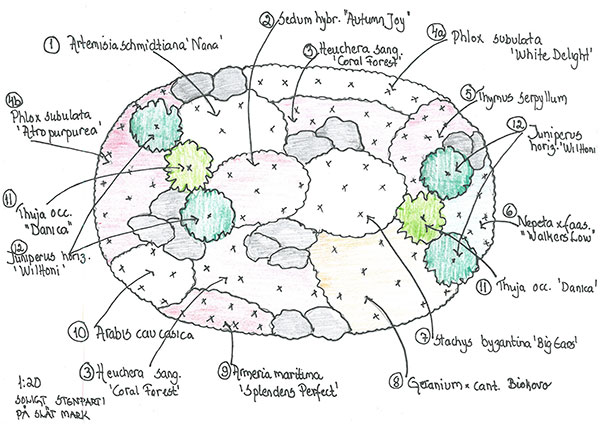 ① Artemisia schmidtiana 'Nana'
② Sedum hybr. "Autumn Joy"
③ Heuchera sang.
'Coral Forest"
④a Phlox subulata
'White Delight'
④b
Phlox subulata
'Atropurpurea'
⑤ Thymus serpyllum
⑫ Juniperus
horiz. 'Wiltoni
⑪
Thuja occ.
"Danica"
⑫
Juniperus horiz.
'Wiltoni'
⑥
Nepeta x faas.
"Walkers Low"
⑪ Thuja occ. 'Danica'
⑩ Arabis caucasica
⑦
Stachys byzantina 'Big Ears'
③ Heuchera sang.
'Coral Forest'
⑨ Armeria maritima
'Splendens Perfect'
⑧ Geranium x cant. Biokovo
1:20
SOLIGT STENPARTI
PÅ SLÄT MARK